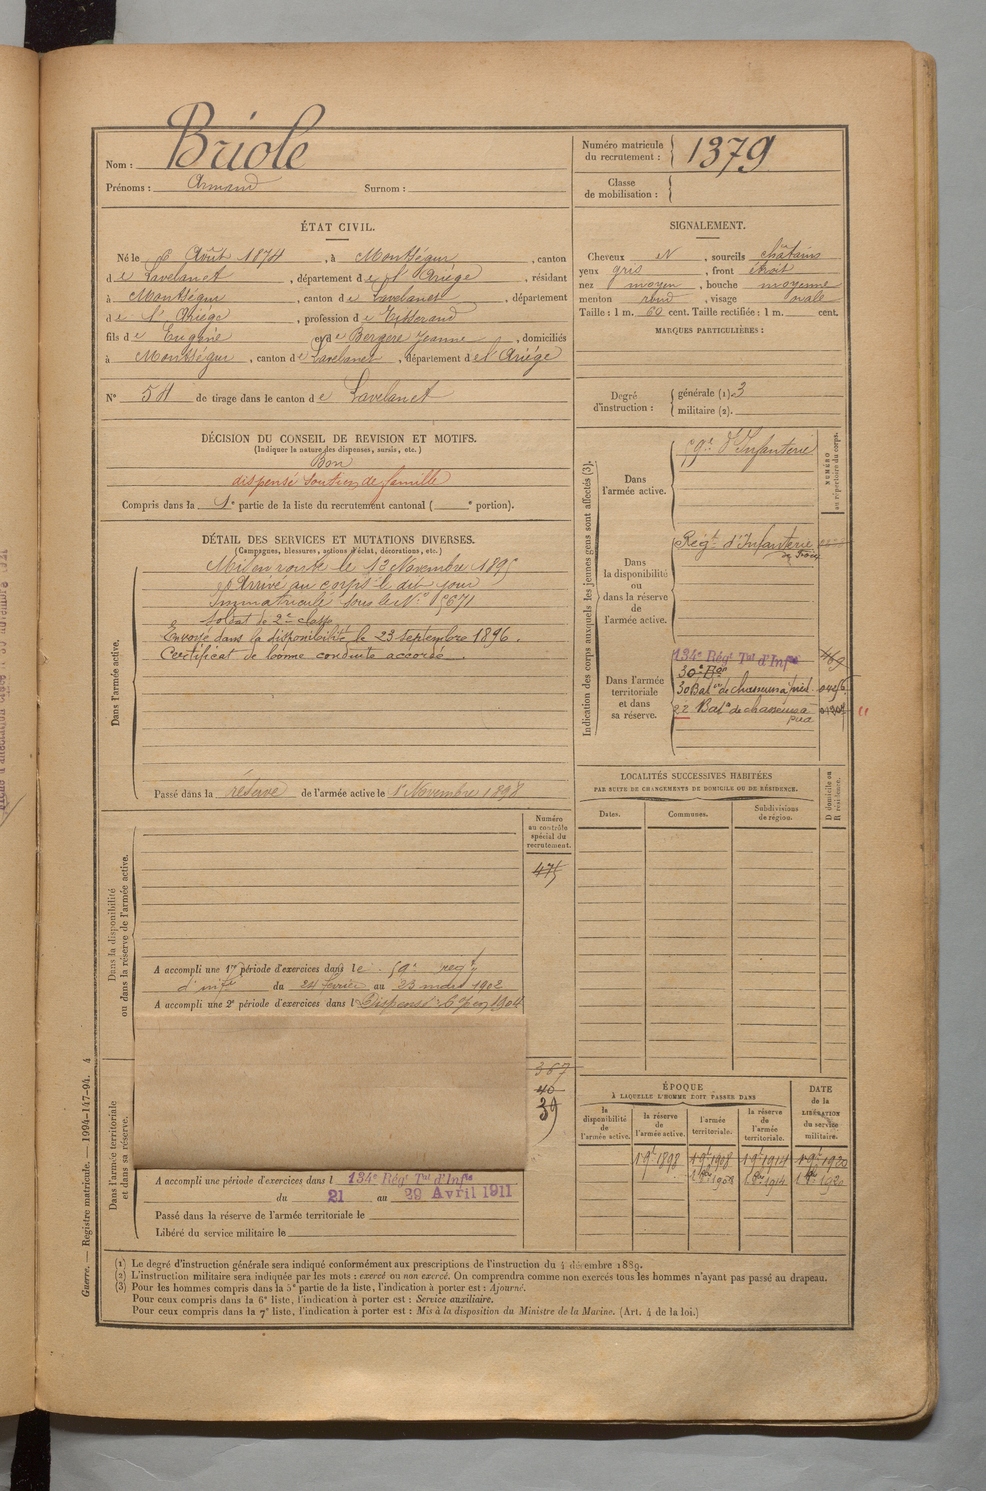 Nom : Briole
Prénoms : Armand Surnom :
Numéro matricule du recrutement : 1379
Classe de mobilisation :
ÉTAT CIVIL.
Né le 6 Août 1874, à Montségur, canton
de Lavelanet, département de l'Ariège, résidant
à Montségur, canton de Lavelanet, département
de l'Ariège, profession de Tisserand
fils de Eugène et de Bergere Jeanne, domiciliés
à Montségur, canton de Lavelanet, département de l'Ariège
N° 54 de tirage dans le canton de Lavelanet
SIGNALEMENT.
Cheveux N, sourcils châtains
yeux gris, front étroit
nez moyen, bouche moyenne
menton rond, visage ovale
Taille : 1 m. 60 cent. Taille rectifiée : 1 m. cent.
MARQUES PARTICULIÈRES :
Degré d'instruction : générale (1). 3
militaire (2).
DÉCISION DU CONSEIL DE REVISION ET MOTIFS.
(Indiquer la nature des dispenses, sursis, etc.)
Bon
dispensé soutien de famille
Compris dans la 1e partie de la liste du recrutement cantonal ( e portion).
DÉTAIL DES SERVICES ET MUTATIONS DIVERSES.
(Campagnes, blessures, actions d'éclat, décorations, etc.)
Dans l'armée active.
Mis en route le 13 Novembre 1895
Arrivé au corps le dit jour
Immatriculé sous le N°
Soldat de 2e classe
Envoyé dans la disponibilité le 23 septembre 1896.
Certificat de bonne conduite accordé.
Passé dans la réserve de l'armée active le 1er Novembre 1898
Indication des corps auxquels les jeunes gens sont affectés (3).
NUMÉRO au répertoire du corps.
Dans l'armée active.
59e d'Infanterie
Dans la disponibilité ou dans la réserve de l'armée active.
Régt d'Infanterie
de Foix
Dans l'armée territoriale et dans sa réserve.
134e Régt Tal d'Infie 469
30e Bon
30 Baton de chasseurs à pied
22 Baton de chasseurs à
pied
LOCALITÉS SUCCESSIVES HABITÉES
PAR SUITE DE CHANGEMENTS DE DOMICILE OU DE RÉSIDENCE.
D domicile ou R résidence.
Dates. Communes. Subdivisions de région.
Dans la disponibilité ou dans la réserve de l'armée active.
Numéro au contrôle spécial du recrutement.
475
A accompli une 1re période d'exercices dans le 59e regt
d'infie du 24 février au 23 mars 1902
A accompli une 2e période d'exercices dans l Dispensé
367
40
39
Dans l'armée territoriale et dans sa réserve.
A accompli une période d'exercices dans l 134e Régt Tal d'Infie
du 21 au 29 Avril 1911
Passé dans la réserve de l'armée territoriale le
Libéré du service militaire le
ÉPOQUE
À LAQUELLE L'HOMME DOIT PASSER DANS
DATE de la LIBÉRATION du service militaire.
la disponibilité de l'armée active. la réserve de l'armée active. l'armée territoriale. la réserve de l'armée territoriale.
1 9e 1898 1 9e 1908 1 9e 1914 1 9e 1920
1908 1914 1920
(1) Le degré d'instruction générale sera indiqué conformément aux prescriptions de l'instruction du 4 décembre 1889.
(2) L'instruction militaire sera indiquée par les mots : exercé ou non exercé. On comprendra comme non exercés tous les hommes n'ayant pas passé au drapeau.
(3) Pour les hommes compris dans la 5e partie de la liste, l'indication à porter est : Ajourné.
Pour ceux compris dans la 6e liste, l'indication à porter est : Service auxiliaire.
Pour ceux compris dans la 7e liste, l'indication à porter est : Mis à la disposition du Ministre de la Marine. (Art. 4 de la loi.)
Guerre. — Registre matricule. — 1994-147-94. 4